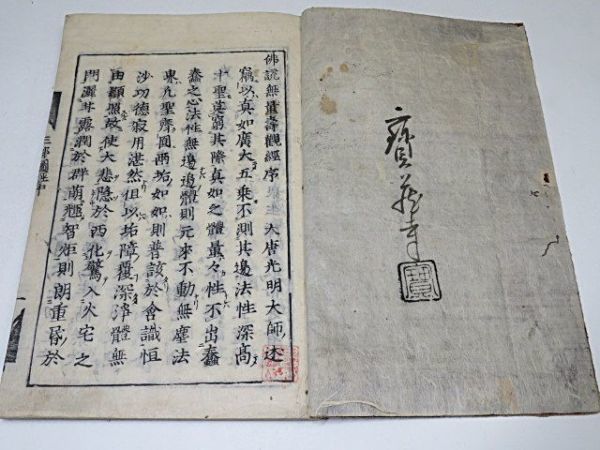 寶藏寺
寶
佛說無量壽觀經序 大唐光明大師 述
竊以真如廣大五乘不測其邊法性深高
十聖莫窮其際真如之體量々性不出蠢
蠢之心法性無邊邊體則元來不動無塵法
界凡聖齊圓兩垢如如則普該於含識恒
沙功德寂用湛然但以垢障覆深淨體無
由顯照故使大悲隱於西化驚入火宅之
門灑甘露潤於群萌輝智炬則朗重昏於